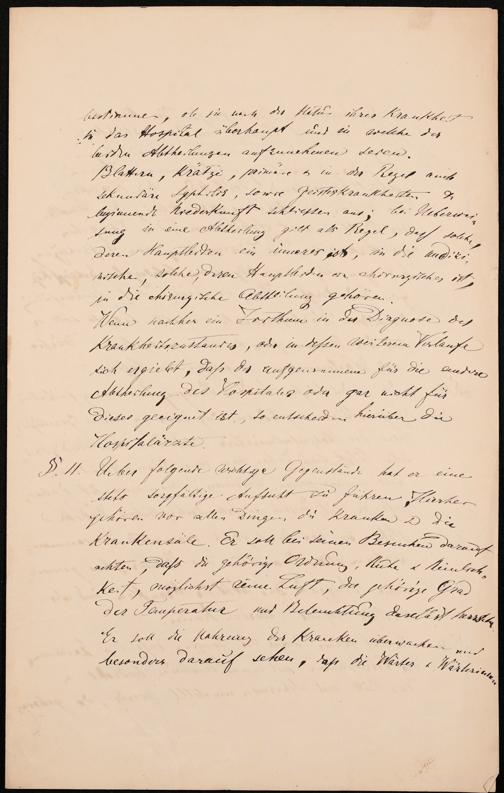 bestimmen, ob sie nach der Natur ihrer Krankheit
in das Hospital überhaupt und in welche der
beiden Abtheilungen aufzunehmen seien.
Blattern, Krätze, primäre & in der Regel auch
sekundäre Syphilis, sowie Geisteskrankheiten &
beginnende Niederkunft schliessen aus; bei Ueberwei-
sung in eine Abtheilung gilt als Regel, daß solche,
deren Hauptleiden ein inneres ist, in die medizi-
nische, solche, deren Hauptleiden ein chirurgisches ist,
in die chirurgische Abtheilung gehören.
Wenn nachher ein Irrthum in der Diagnose des
Krankheitszustandes, oder in dessen weiterem Verlaufe
sich ergiebt, daß der aufgenommene für die andere
Abtheilung des Hospitales oder gar nicht für
dieses geeignet ist, so entscheiden hierüber die
Hospitalärzte.
§. 11. Ueber folgende wichtige Gegenstände hat er eine
stets sorgfältige Aufsicht zu führen. Hierher
gehören vor allen Dingen die Kranken & die
Krankensäle. Er soll bei seinen Besuchen darauf
achten, daß die gehörige Ordnung, Ruhe & Reinlich-
keit, möglichst reine Luft, der gehörige Grad
der Temperatur und Beleuchtung daselbst herrschen
Er soll die Nahrung der Kranken überwachen und
besonders darauf sehen, daß die Wärter & Wärterinnen